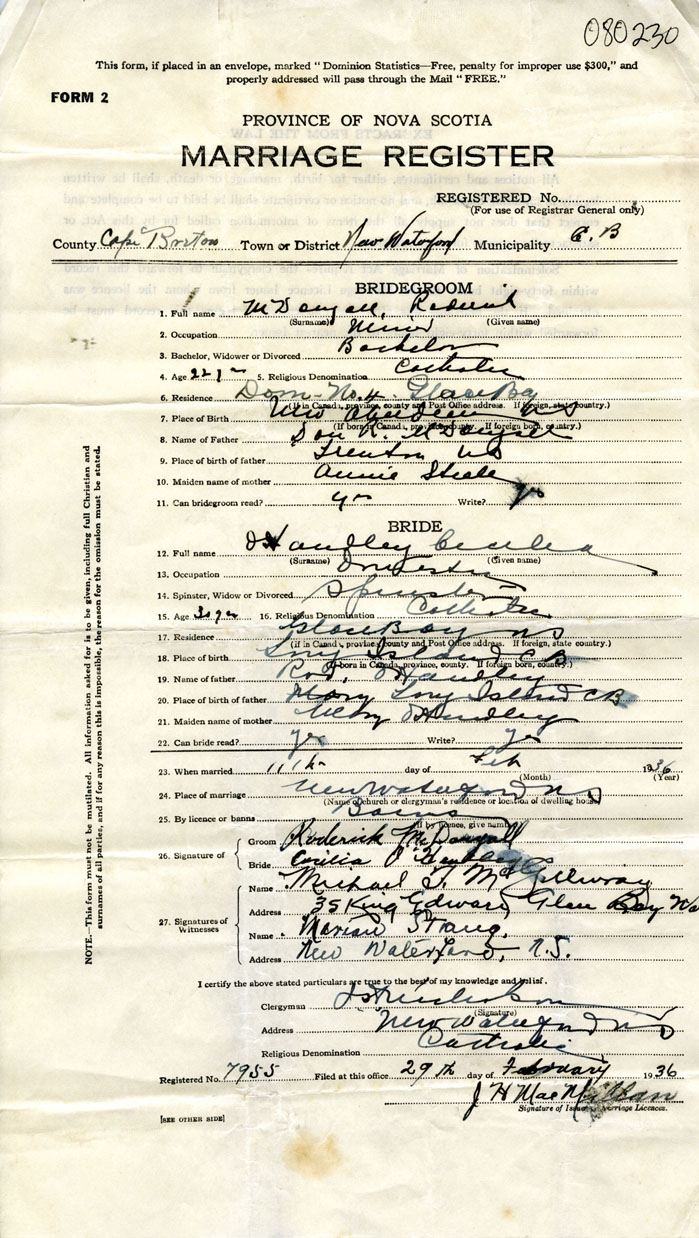 080230
This form, if placed in an envelope, marked "Dominion Statistics—Free, penalty for improper use $300," and
properly addressed will pass through the Mail "FREE."
FORM 2
PROVINCE OF NOVA SCOTIA
MARRIAGE REGISTER
REGISTERED No.
(For use of Registrar General only)
County Cape Breton Town or District New Waterford Municipality C. B
BRIDEGROOM
1. Full name McDougall, Roderick
(Surname) (Given name)
2. Occupation Miner
3. Bachelor, Widower or Divorced Bachelor
4. Age 22 yrs 5. Religious Denomination Catholic
6. Residence Dom. No. 4. Glace Bay
(If in Canada, province, county and Post Office address. If foreign, state country.)
7. Place of Birth New Aberdeen NS
(If born in Canada, province, county. If foreign born, country.)
8. Name of Father Dan R. McDougall
9. Place of birth of father Trenton NS
10. Maiden name of mother Annie Steele
11. Can bridegroom read? yes Write? yes
BRIDE
12. Full name O'Handley Cecilia
(Surname) (Given name)
13. Occupation Domestic
14. Spinster, Widow or Divorced Spinster
15. Age 30 yrs 16. Religious Denomination Catholic
17. Residence Glace Bay NS
(If in Canada, province, county and Post Office address. If foreign, state country.)
18. Place of birth Long Island C B
(If born in Canada, province, county. If foreign born, country.)
19. Name of father Rod. O'Handley
20. Place of birth of father Long Island CB
21. Maiden name of mother O'Handley
22. Can bride read? yes Write? yes
23. When married 11th day of Feb 1936
(Month) (Year)
24. Place of marriage New Waterford NS
(Name of church or clergyman's residence or location of dwelling house)
25. By licence or banns Banns
(If by licence, give name)
26. Signature of
Groom Roderick McDougall
Bride Cecilia O'Handley
27. Signatures of Witnesses
Name Michael F. McGillivray
Address 35 King Edward Glace Bay
Name Marion Strang,
Address New Waterford, N.S.
I certify the above stated particulars are true to the best of my knowledge and belief.
Clergyman
(Signature)
Address New Waterford NS
Religious Denomination Catholic
Registered No. 7955 Filed at this office 29th day of February 1936
J H MacMillan
Signature of Issuer of Marriage Licences.
[SEE OTHER SIDE]
NOTE.—This form must not be mutilated. All information asked for is to be given, including full Christian and
surnames of all parties, and if for any reason this is impossible, the reason for the omission must be stated.